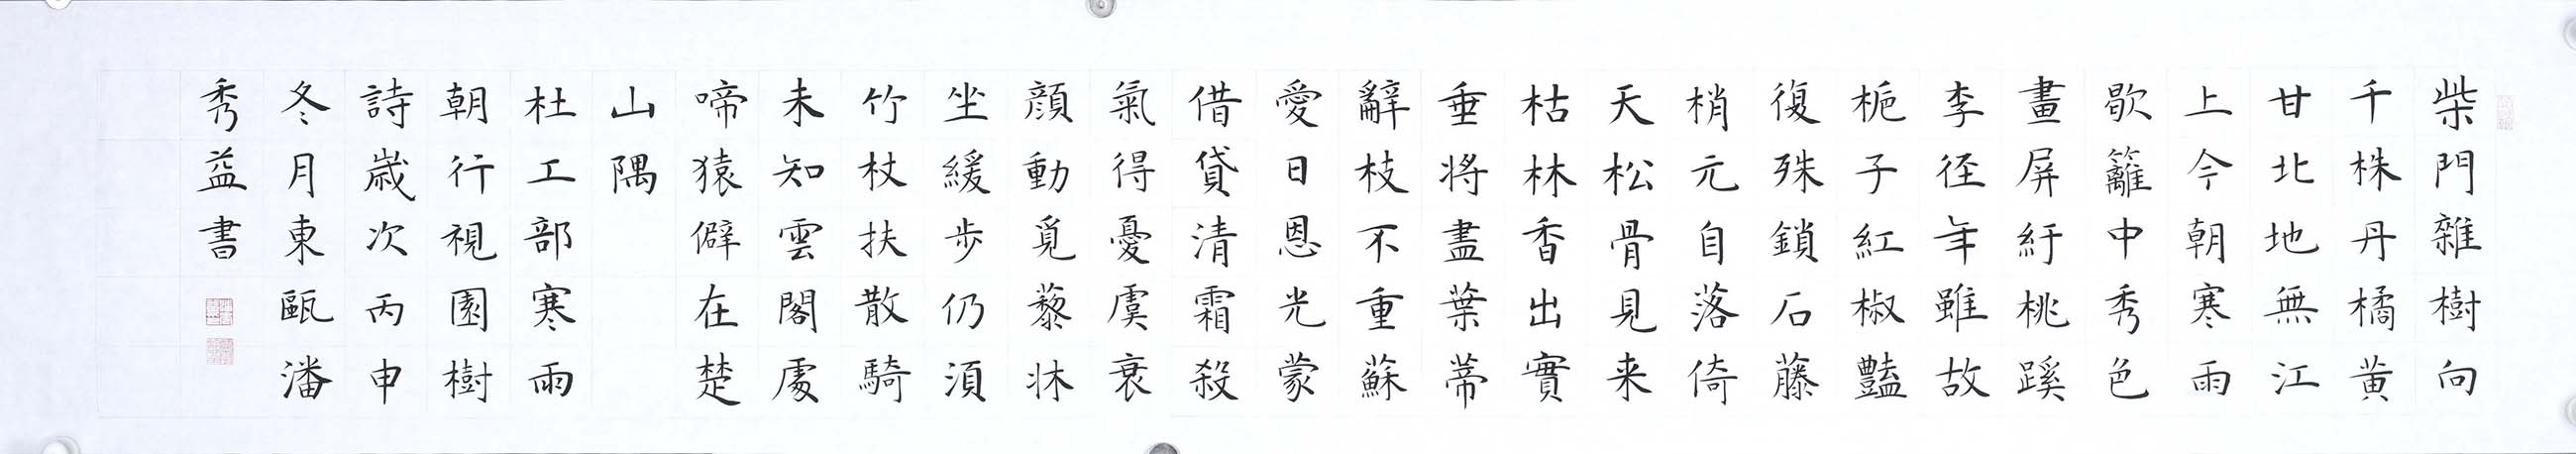 柴門雜樹向
千株丹橘黃
甘北地無江
上今朝寒雨
歇籬中秀色
畫屏紆桃蹊
李徑年雖故
梔子紅椒豔
復殊鎖石藤
梢元自落倚
天松骨見来
枯林香出實
垂將盡葉蒂
辭枝不重蘇
愛日恩光蒙
借貸清霜殺
氣得憂虞衰
顔動覓藜牀
坐緩步仍須
竹杖扶散騎
未知雲閣處
啼猿僻在楚
山隅
杜工部寒雨
朝行視園樹
詩歲次丙申
冬月東甌潘
秀益書